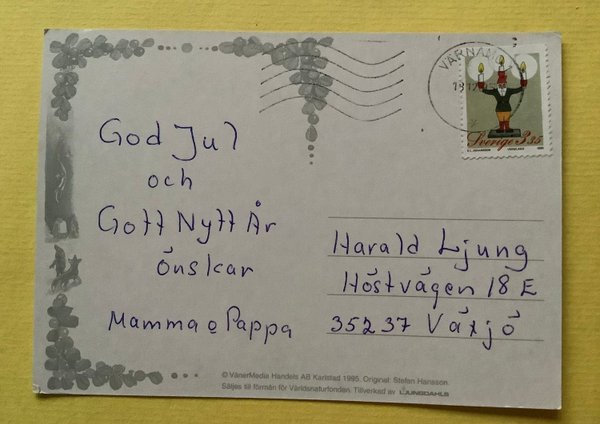 God Jul
och
Gott Nytt År
önskar
Mamma o Pappa
VÄRNAMO
Sverige 3.35
Harald Ljung
Höstvägen 18 E
35237 Växjö
© VänerMedia Handels AB Karlstad 1995. Original: Stefan Hansson.
Säljes till förmån för Världsnaturfonden. Tillverkad av LJUNGDAHLS